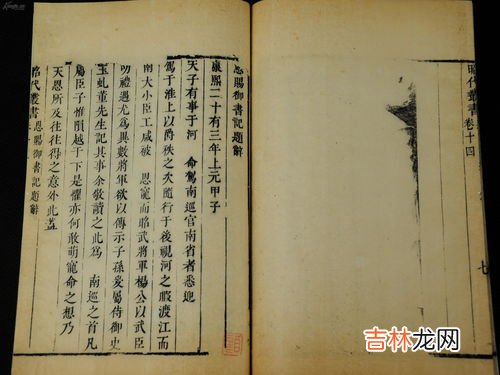 昭代叢書卷十四
七
恩賜御書記題辭
康熙二十有三年上元甲子
天子有事于河 命駕南巡官南省者悉迎
駕于淮上以爵秩之次隨行于後視河之暇渡江而
南大小臣工咸被 恩寵而昭武將軍楊公以武臣
叨禮遇尤為異數將軍欲以傳示子孫爰屬侍御史
玉虬董先生記其事余敬讀之此為 南巡之首凡
屬臣子惟隕越于下是懼亦何敢萌寵命之想乃
天恩所及往往得之意外此蓋
昭代叢書 恩賜御書記題辭
吉林龙网
JiLin.cc